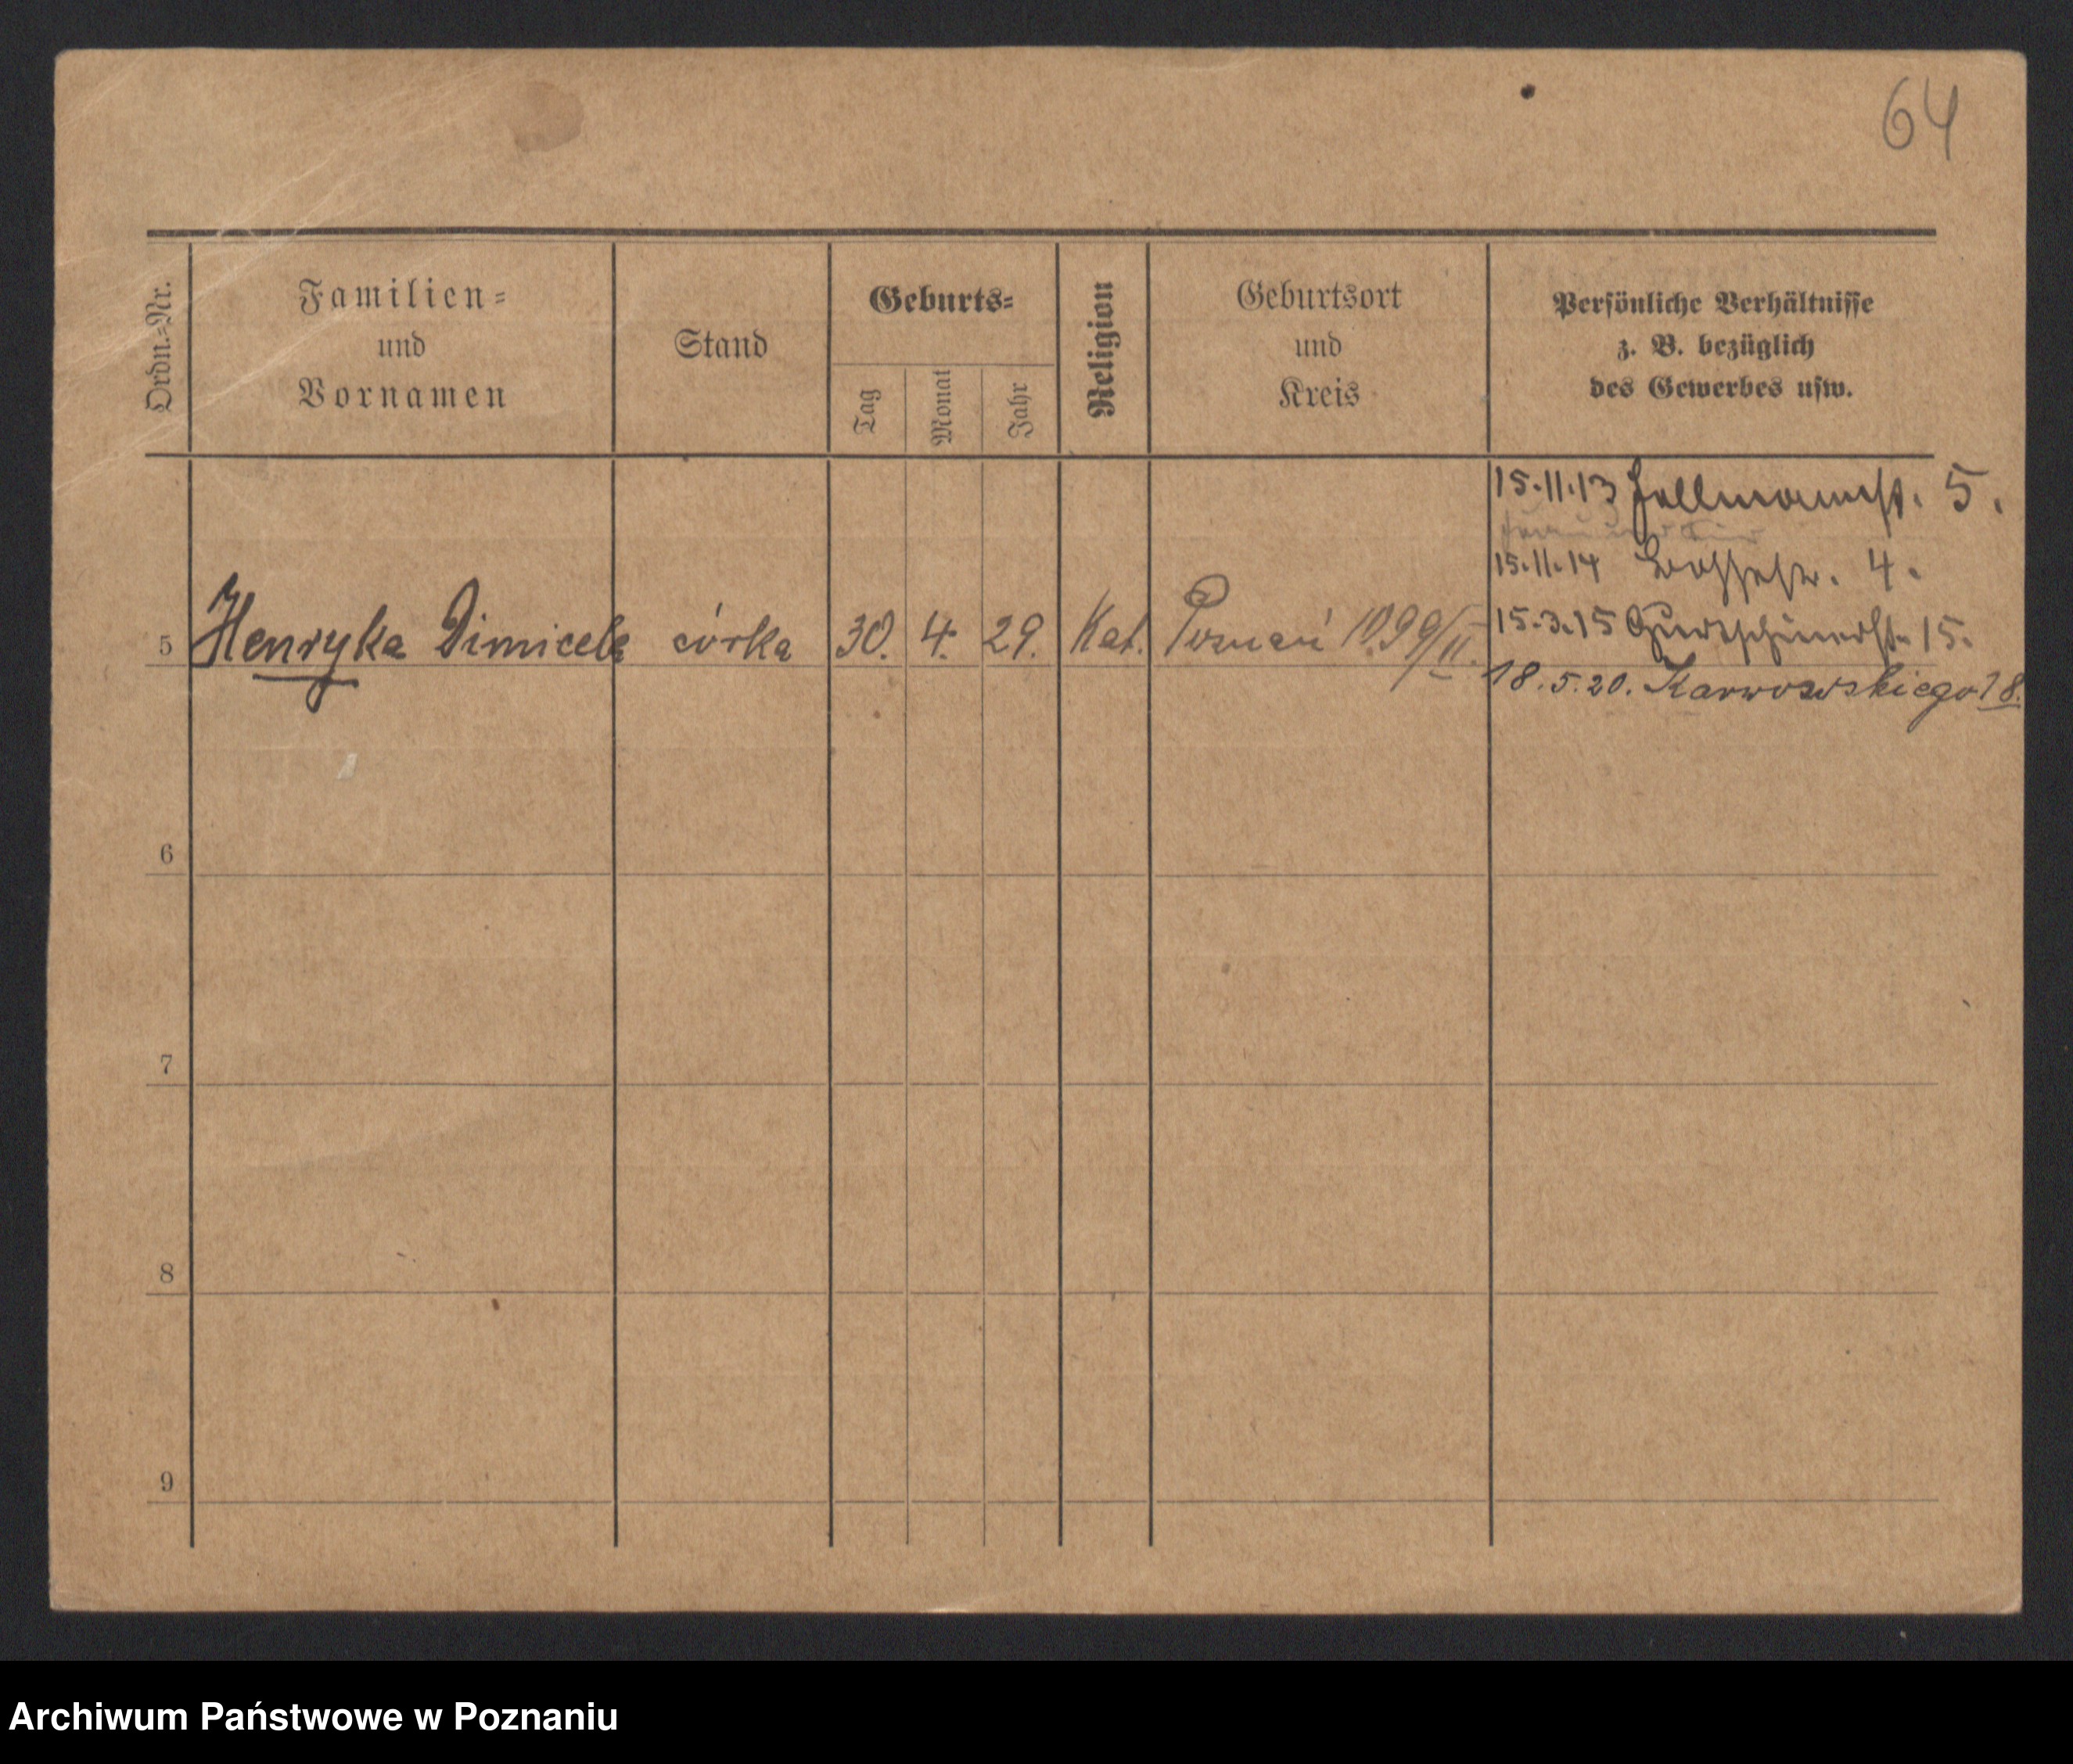 64
Ordn.-Nr.
Familien-
und
Vornamen
Stand
Geburts-
Tag
Monat
Jahr
Religion
Geburtsort
und
Kreis
Persönliche Verhältnisse
z. B. bezüglich
des Gewerbes usw.
15.11.13 Hellmannst. 5.
15.11.14 4.
15.3.15 Gurtschinerst. 15.
5 Henryka Dimicela córka 30. 4. 29. Kat. Poznań 1099/II.
18.5.20. Karwowskiego 18.
6
7
8
9
Archiwum Państwowe w Poznaniu